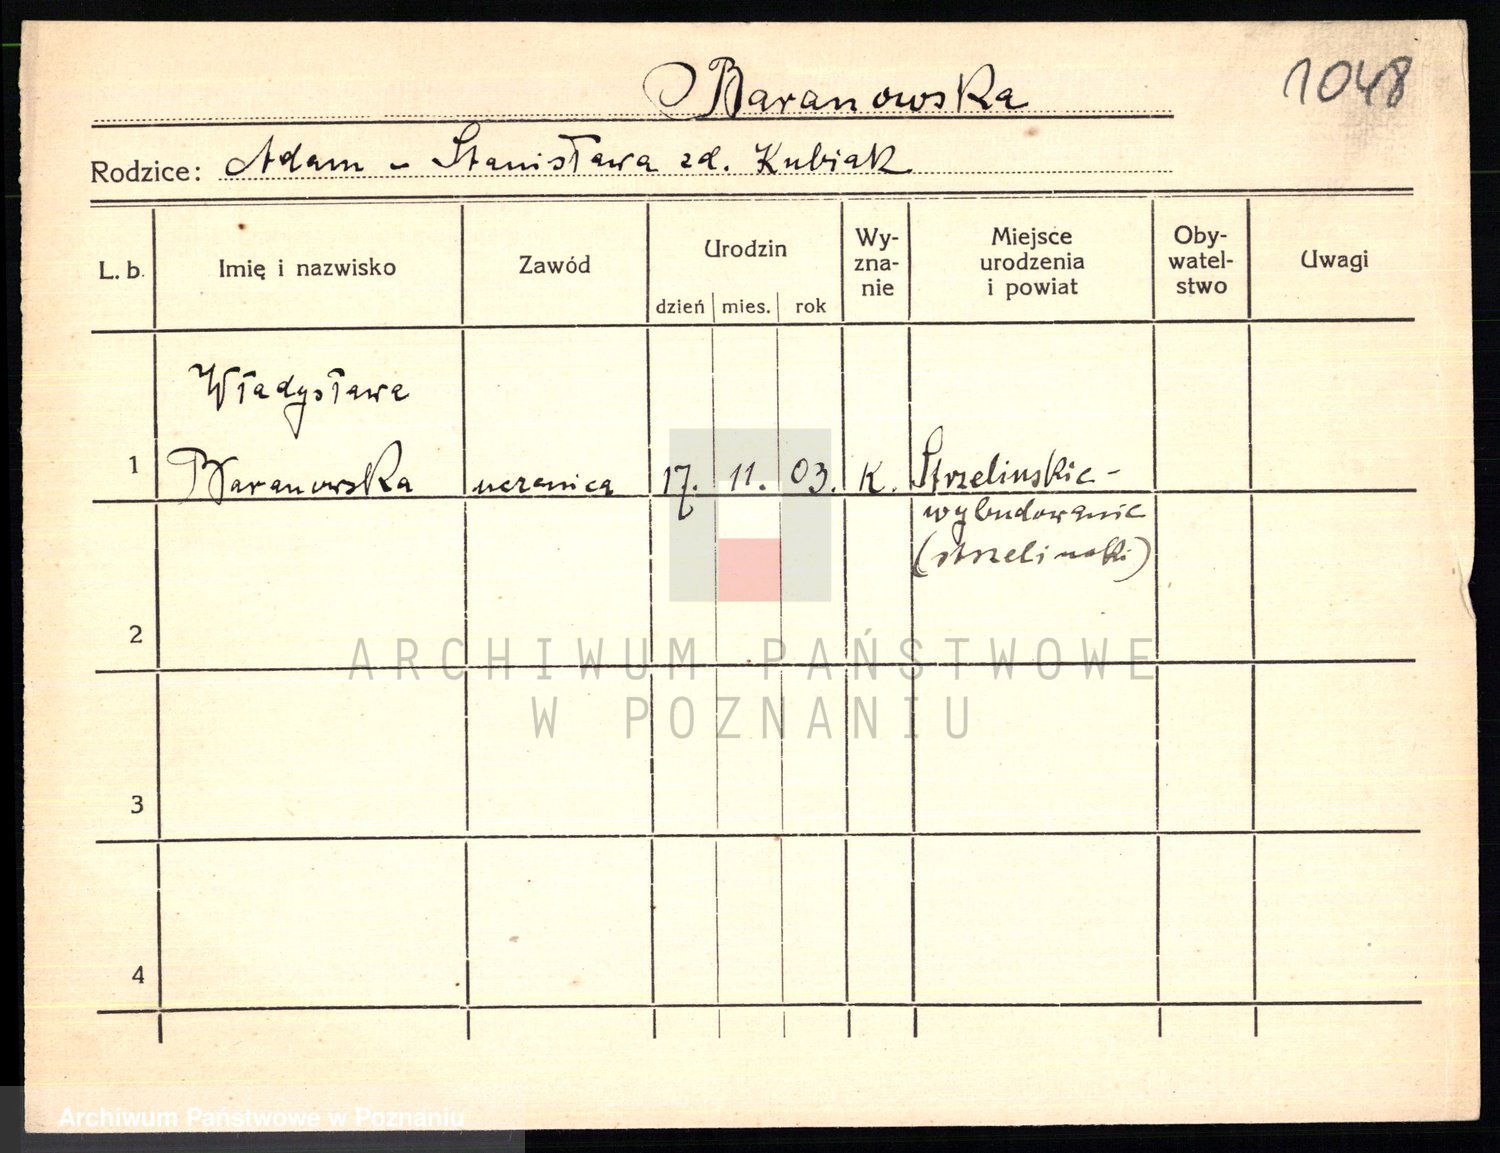 Baranowska
1048
Rodzice: Adam - Stanisława zd. Kubiak
L. b.
Imię i nazwisko
Zawód
Urodzin
dzień mies. rok
Wy-
zna-
nie
Miejsce
urodzenia
i powiat
Oby-
watel-
stwo
Uwagi
Władysława
1 Baranowska uczenica 17. 11. 03. K. Strzelinskie -
wybudowanie
(strzelinski)
2
3
4
ARCHIWUM PAŃSTWOWE
W POZNANIU
Archiwum Państwowe w Poznaniu